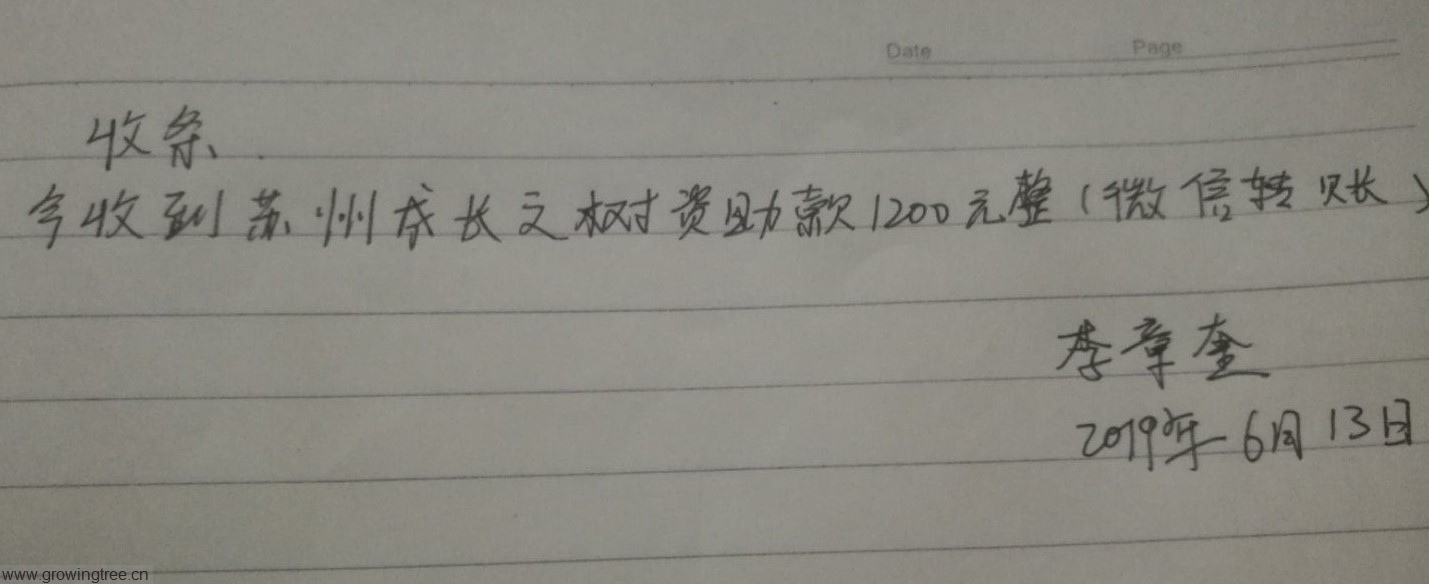 Date Page
收条
今收到苏州成长之树资助款1200元整(微信转账)
李章奎
2019年6月13日
www.growingtree.cn